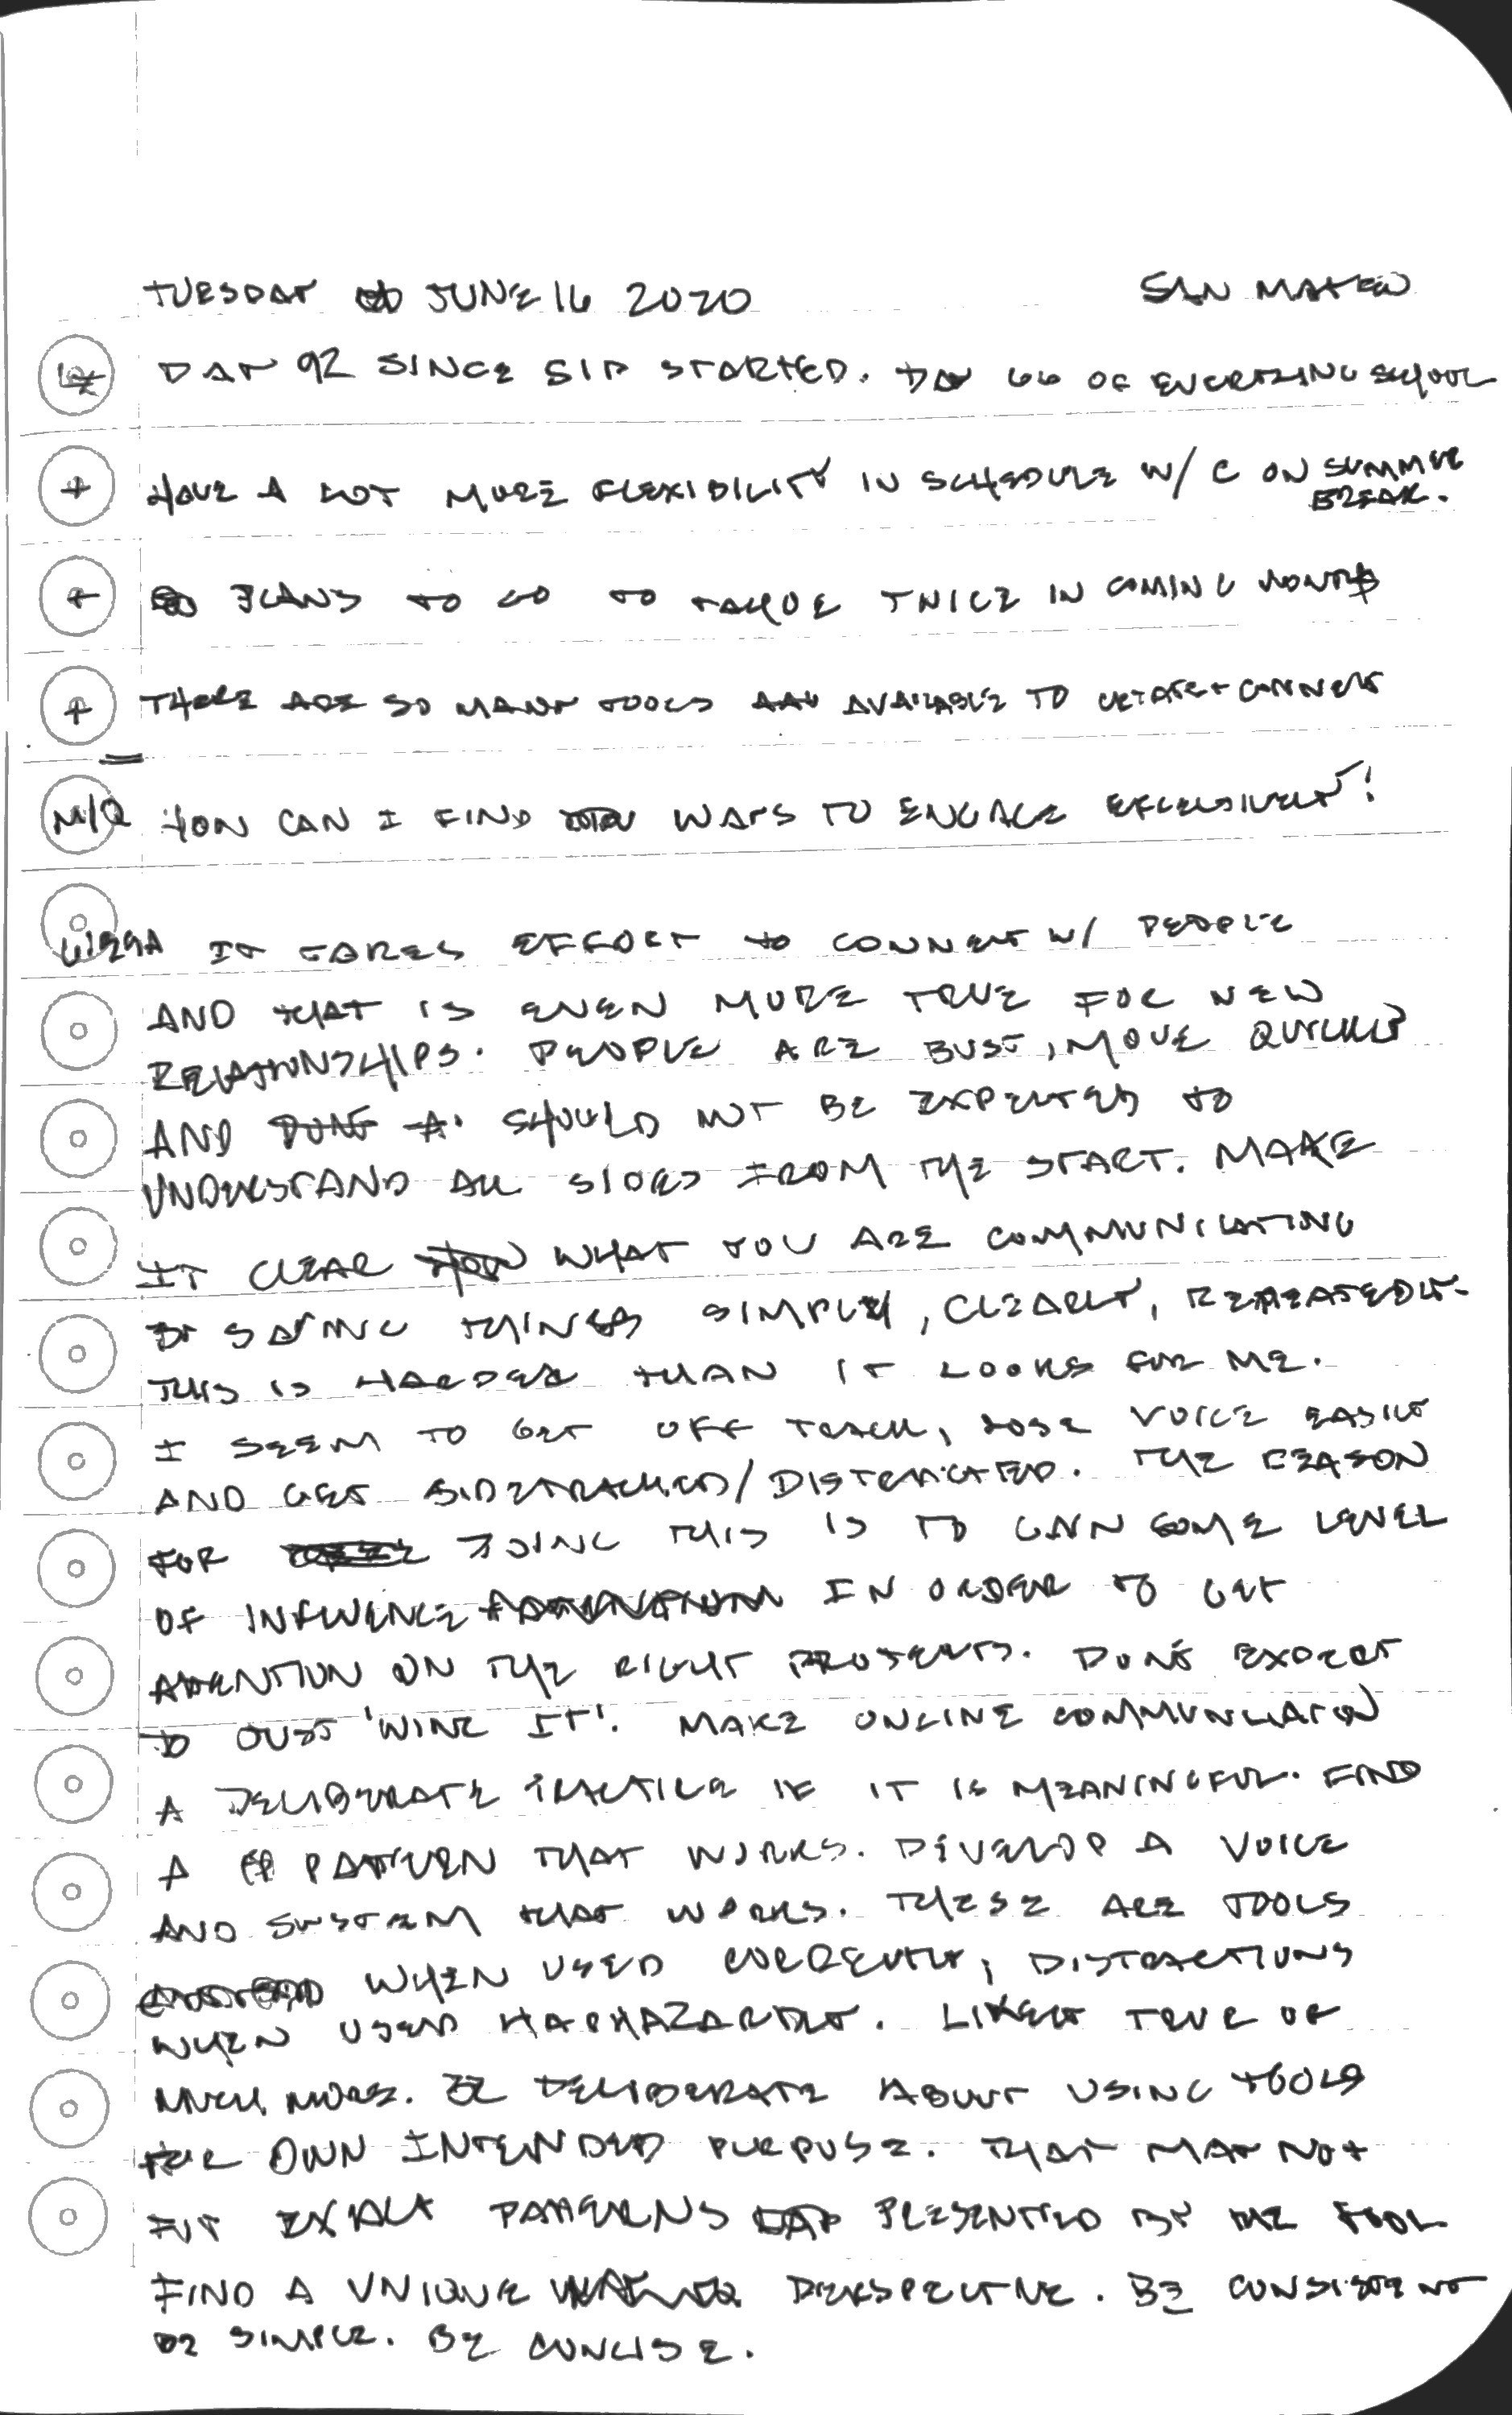 TUESDAY JUNE 16 2020 SAN MATEO
DAY 92 SINCE SIP STARTED. DAY 66 OF EVERYTHING SCHOOL
+ HAVE A LOT MORE FLEXIBILITY IN SCHEDULE W/ C ON SUMMER
BREAK.
+ PLANS TO GO TO TAHOE TWICE IN COMING MONTHS
+ THERE ARE SO MANY TOOLS AVAILABLE TO CREATE + CONNECT
M/Q HOW CAN I FIND WAYS TO ENGAGE EFFECTIVELY?
IT TAKES EFFORT TO CONNECT W/ PEOPLE
AND THAT IS EVEN MORE TRUE FOR NEW
RELATIONSHIPS. PEOPLE ARE BUSY, MOVE QUICKLY
AND SHOULD NOT BE EXPECTED TO
UNDERSTAND ALL SIDES FROM THE START. MAKE
IT CLEAR WHAT YOU ARE COMMUNICATING
BY SAYING THINGS SIMPLY, CLEARLY, REPEATEDLY.
THIS IS HARDER THAN IT LOOKS FOR ME.
I SEEM TO GET OFF TRACK, LOSE VOICE EASILY
AND GET SIDETRACKED/DISTRACTED. THE REASON
FOR DOING THIS IS TO GAIN SOME LEVEL
OF INFLUENCE IN ORDER TO GET
ATTENTION ON THE RIGHT PROJECTS. DON'T EXPECT
TO JUST 'WING IT'. MAKE ONLINE COMMUNICATION
A DELIBERATE PRACTICE IF IT IS MEANINGFUL. FIND
A PATTERN THAT WORKS. DEVELOP A VOICE
AND SYSTEM THAT WORKS. THESE ARE TOOLS
WHEN USED CORRECTLY, DISTRACTIONS
WHEN USED HAPHAZARDLY. LIKELY TRUE OF
MUCH MORE. BE DELIBERATE ABOUT USING TOOLS
FOR OWN INTENDED PURPOSE. THAT MAY NOT
FIT EXACT PATTERNS PRESENTED BY THE TOOL
FIND A UNIQUE PERSPECTIVE. BE CONSISTENT
BE SIMPLE. BE CONCISE.